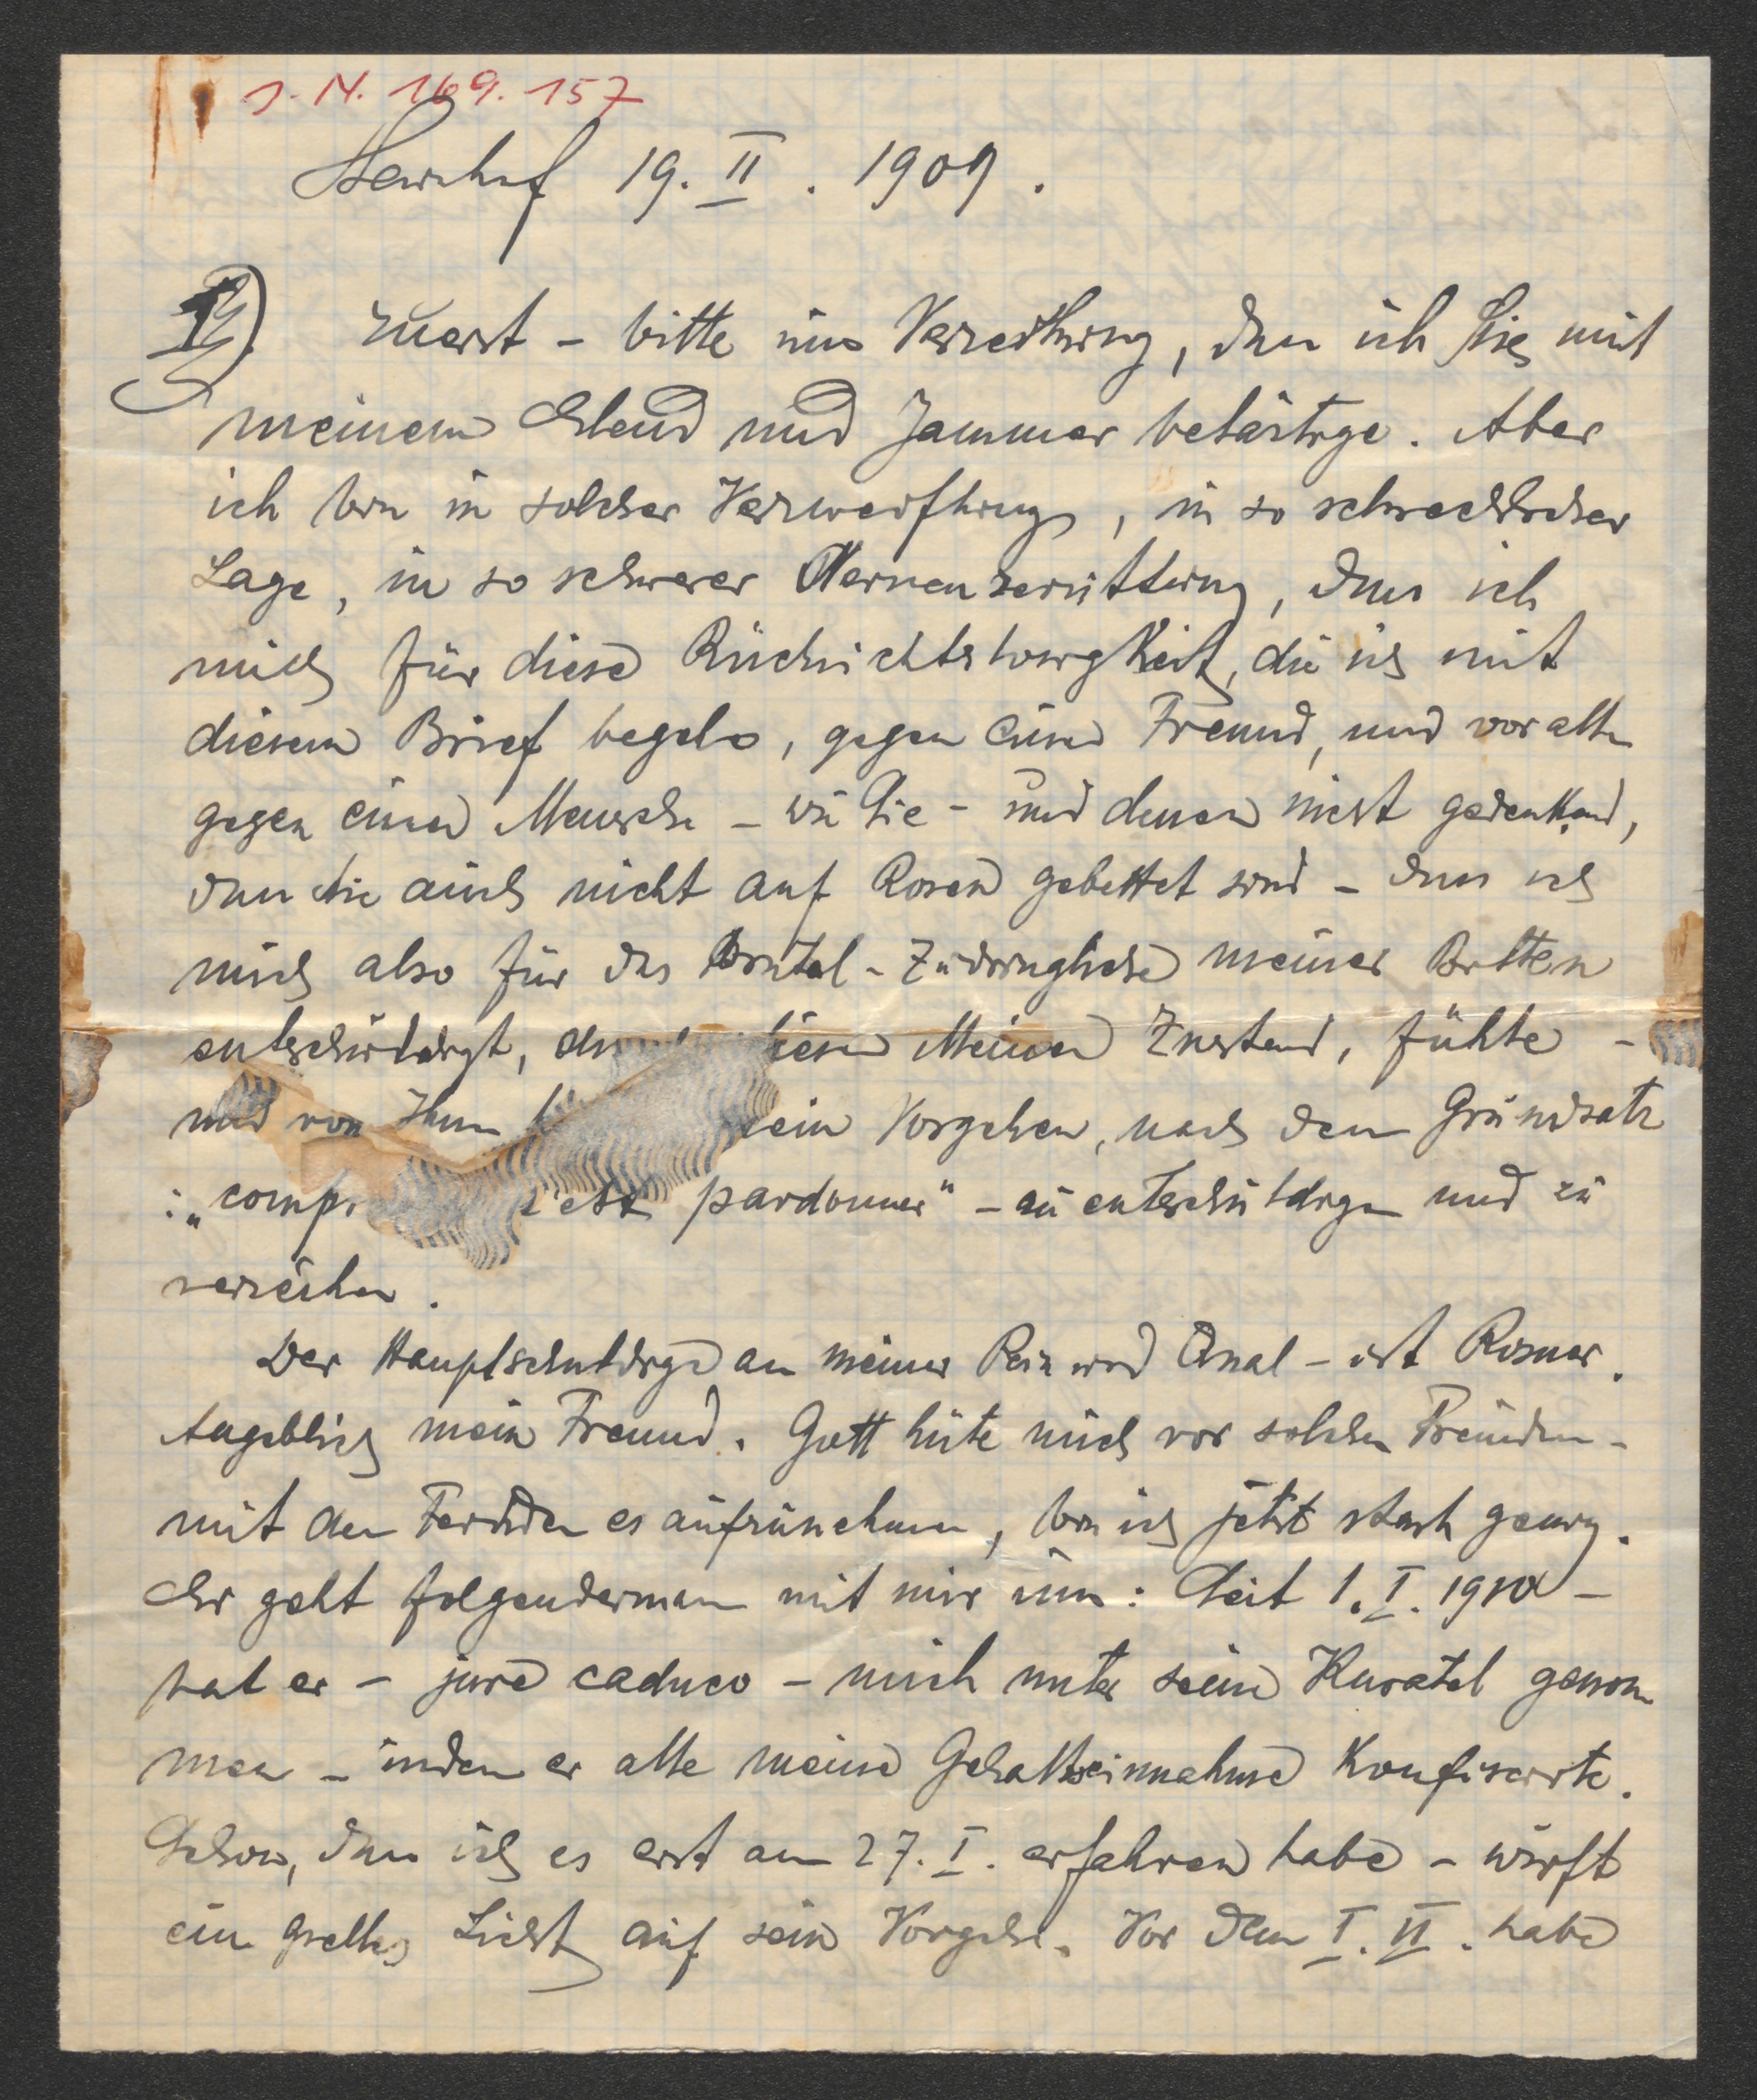 J. N. 169.157
19. II. 1909.
1) Zuerst – bitte um Verzeihung, dass ich Sie mit
meinem Elend und Jammer belästige. Aber
ich bin in solcher Verzweiflung, in so schrecklicher
Lage, in so schwerer Nervenzerüttung, dass ich
mich für diese Rücksichtslosigkeit, die ich mit
diesem Brief begehe, gegen einen Freund, und vor allem
gegen einen Menschen – wie Sie – und dessen nicht gedenkend,
dass Sie auch nicht auf Rosen gebettet sind – dass ich
mich also für das Brutal-Zudringliche meiner Bitten
entschuldigt, diesen Meinen Zustand, fühle –
und von Ihnen mein Vorgehen, nach dem Grundsatz
: „comp c'est pardonner" – zu entschuldigen und zu
verzeihen.
Der Hauptschuldige an meiner Pein und Qual – ist Rosner.
Angeblich mein Freund. Gott hüte mich vor solchen Freunden –
mit den Feinden es aufzunehmen, bin ich jetzt stark genug.
Er geht folgendermassen mit mir um: Seit 1. I. 1910 –
hat er – jure caduco – mich unter seine Kuratel genom
men – indem er alle meine Gehaltseinnahme konfiszirte.
Schon, dass ich es erst am 27. I. erfahren habe – wirft
ein grelles Licht auf sein Vorgehen. Vor dem I. II. habe